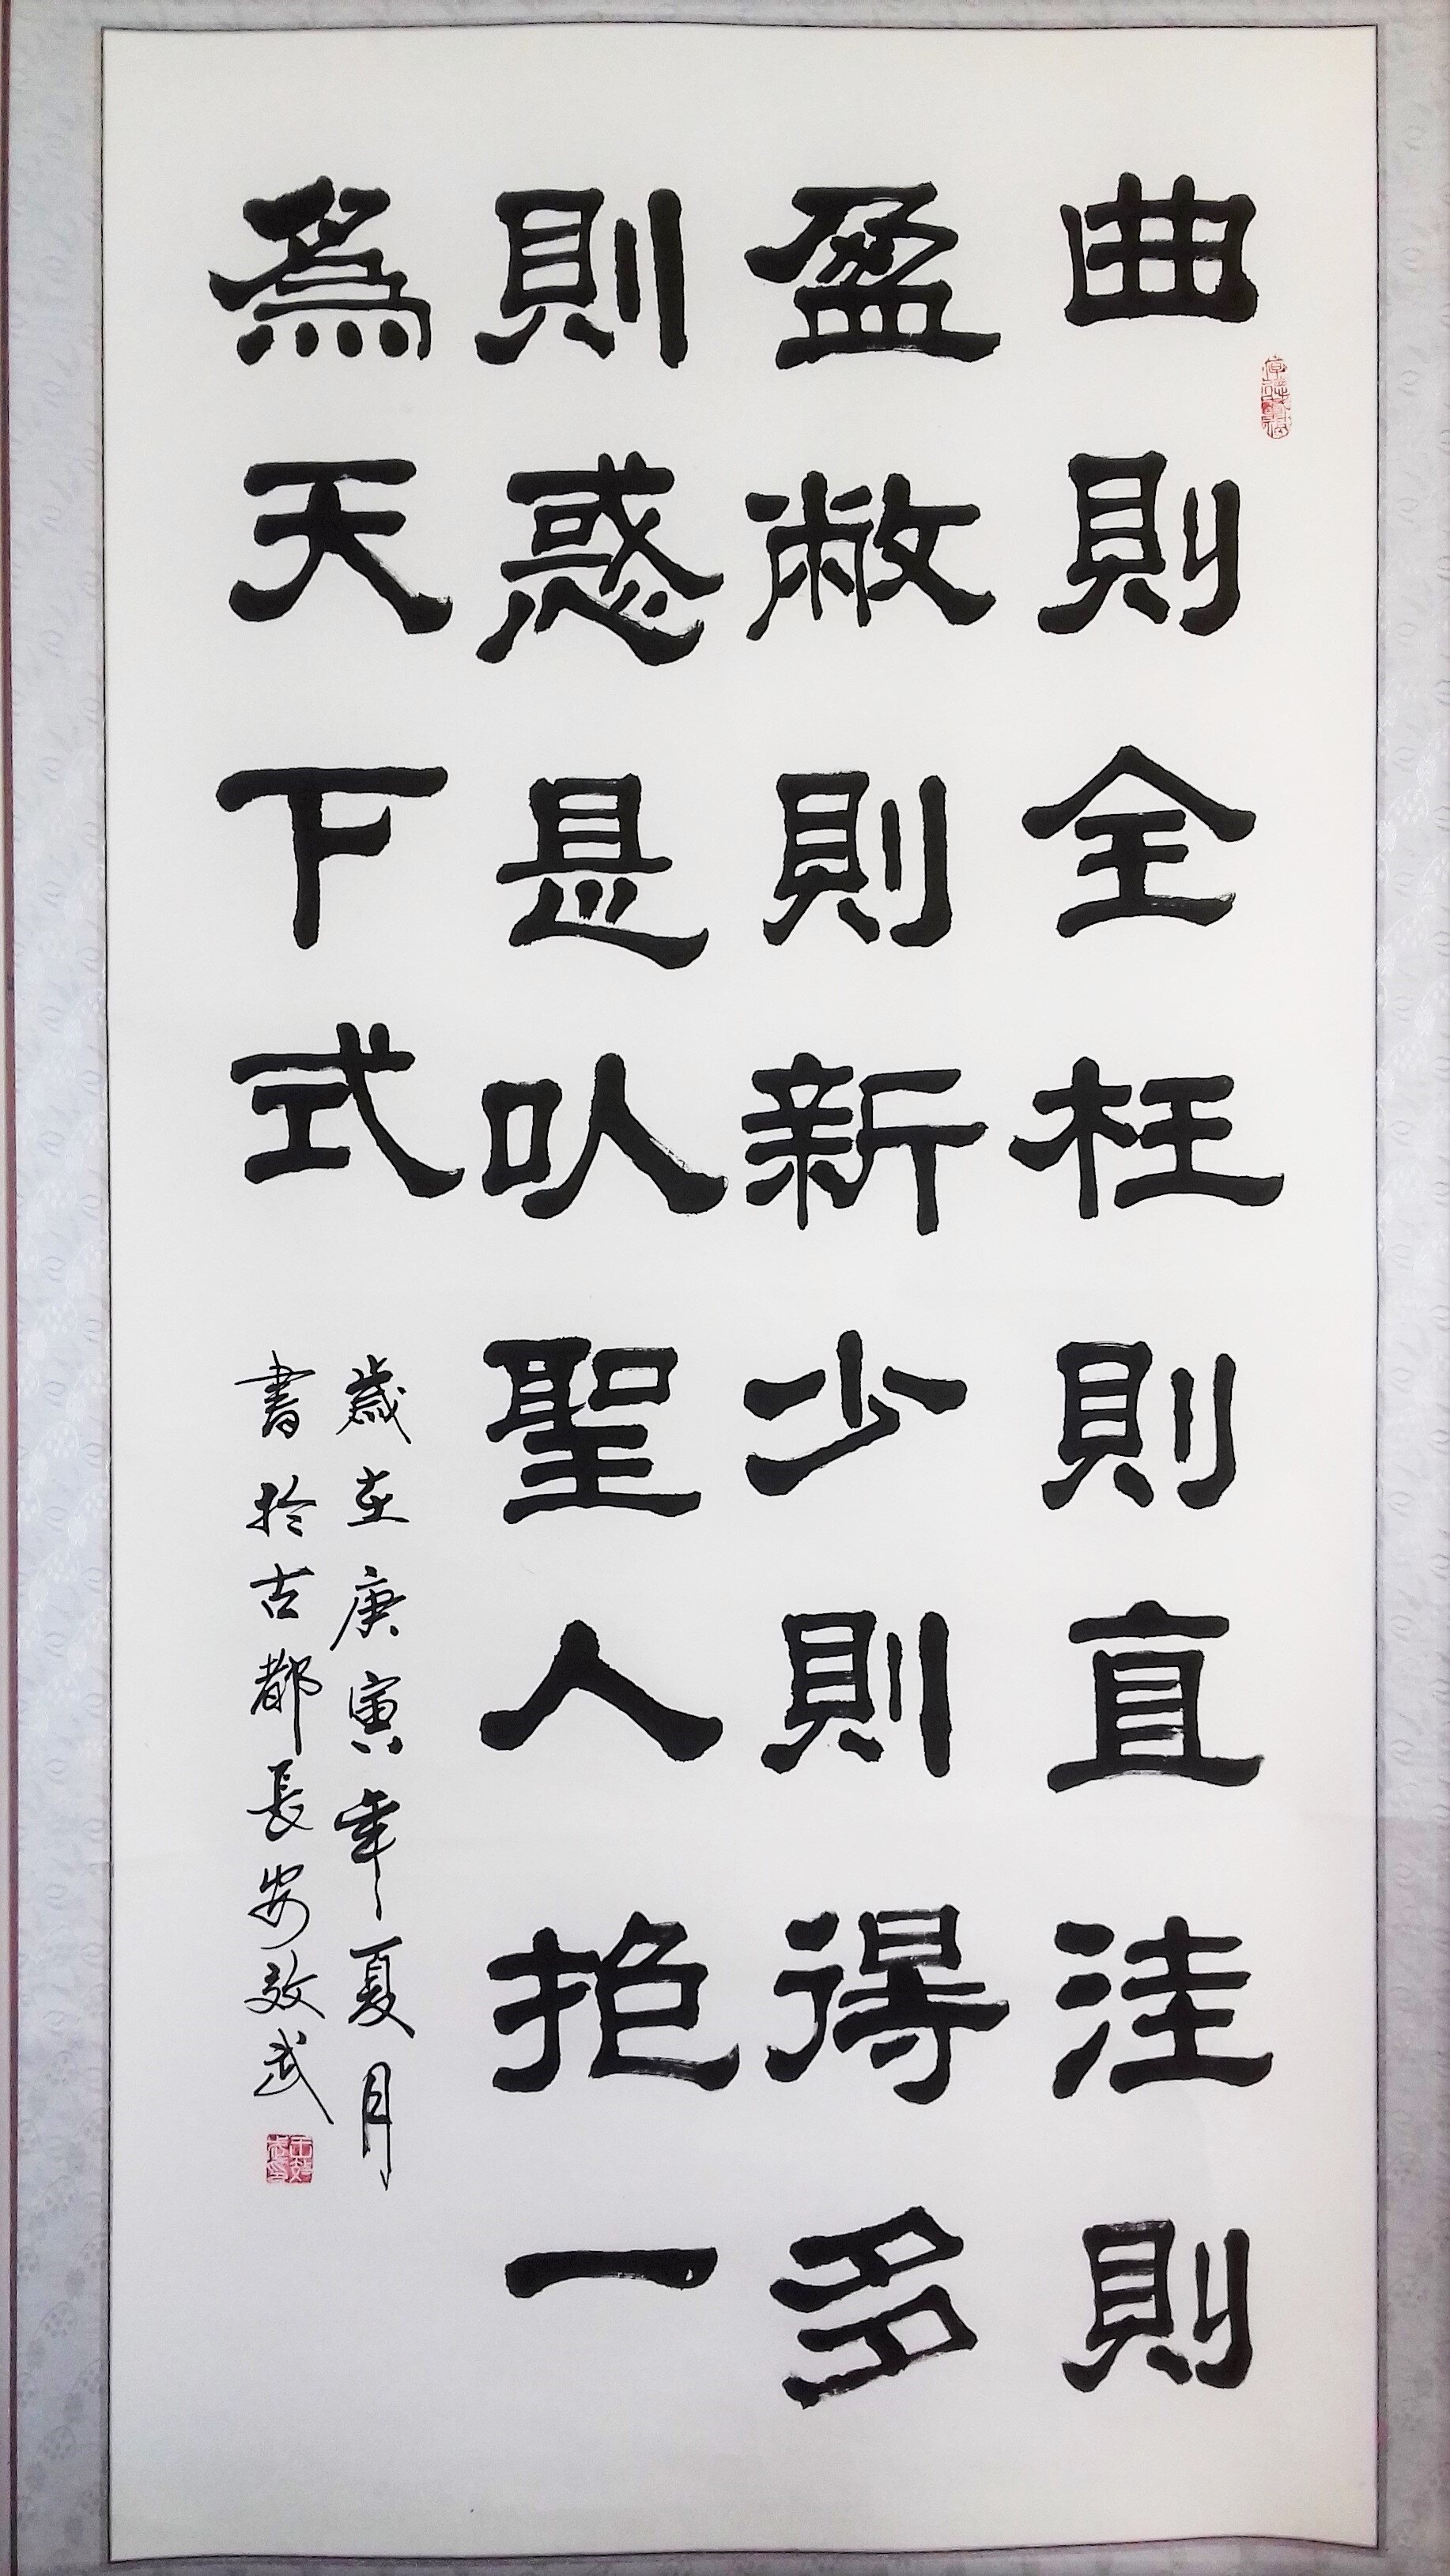 曲則全枉則直洼則
盈敝則新少則得多
則惑是以聖人抱一
為天下式
歲在庚寅年夏月
書於古都長安效武